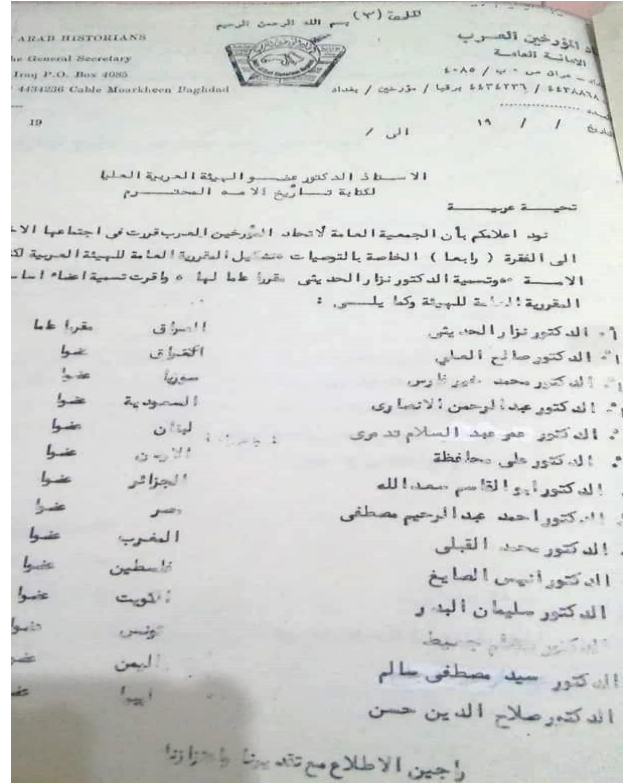 الملحق (٣)
بسم الله الرحمن الرحيم
ARAB HISTORIANS
he General Secretary
Iraq P.O. Box 4085
4434236 Cable Moarkheen Baghdad
19
المؤرخين العرب
الامانة العامة
ص ٠ ب / ٤٠٨٥
٤٤٣٤٢٣٦ برقيا / مؤرخين / بغداد
التاريخ / / ١٩
الى /
الاستاذ الدكتور عضو الهيئة العربية العليا
لكتابة تاريخ الامه المحترم
تحية عربية
نود اعلامكم بأن الجمعية العامة لاتحاد المؤرخين العرب قررت في اجتماعها
الى الفقرة ( رابعا ) الخاصة بالتوصيات تشكيل المقررية العامة للهيئة العربية
الامة وتسمية الدكتور نزار الحديثي مقررا عاما لها ٠ واقرت تسمية اعضاء
المقررية العامة للهيئة وكما يلي :
الدكتور نزار الحديثي العراق مقررا عاما
الدكتور صالح العلي العراق عضوا
الدكتور محمد خير فارس سوريا عضوا
الدكتور عبدالرحمن الانصارى السعودية عضوا
الدكتور عمر عبد السلام تدمرى لبنان عضوا
الدكتور على محافظة الاردن عضوا
الدكتور ابو القاسم سعدالله الجزائر عضوا
الدكتور احمد عبدالرحيم مصطفى مصر عضوا
الدكتور محمد القبلى المغرب عضوا
الدكتور انيس الصايغ فلسطين عضوا
الدكتور سليمان البدر الكويت عضوا
الدكتور هشام جعيط تونس عضوا
الدكتور سيد مصطفى سالم اليمن عضوا
الدكتور صلاح الدين حسن ليبيا عضوا
راجين الاطلاع مع تقديرنا واعتزازنا